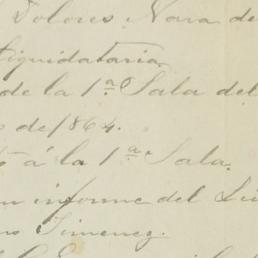 Dolores Nava de
Liquidataria
de la 1ª Sala del
de 1864.
á la 1ª Sala.
informe del
Jimenez.